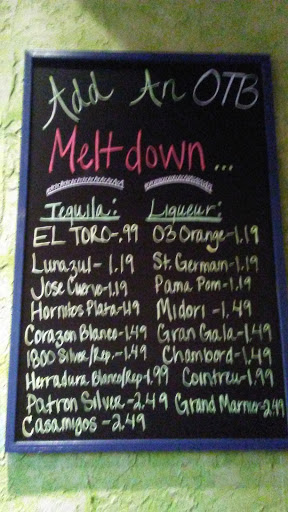 Add An OTB
Meltdown...
Tequila: Liqueur:
EL TORO-.99 O3 Orange-1.19
Lunazul- 1.19 St. Germain-1.19
Jose Cuervo-1.19 Pama Pom-1.19
Hornitos Plata-1.49 Midori -1.49
Corazon Blanco-1.49 Gran Gala-1.49
1800 Silver/Rep.-1.49 Chambord-1.49
Herradura Blanco/Rep-1.99 Cointreu-1.99
Patron Silver-2.49 Grand Marnier-2.49
Casamigos-2.49